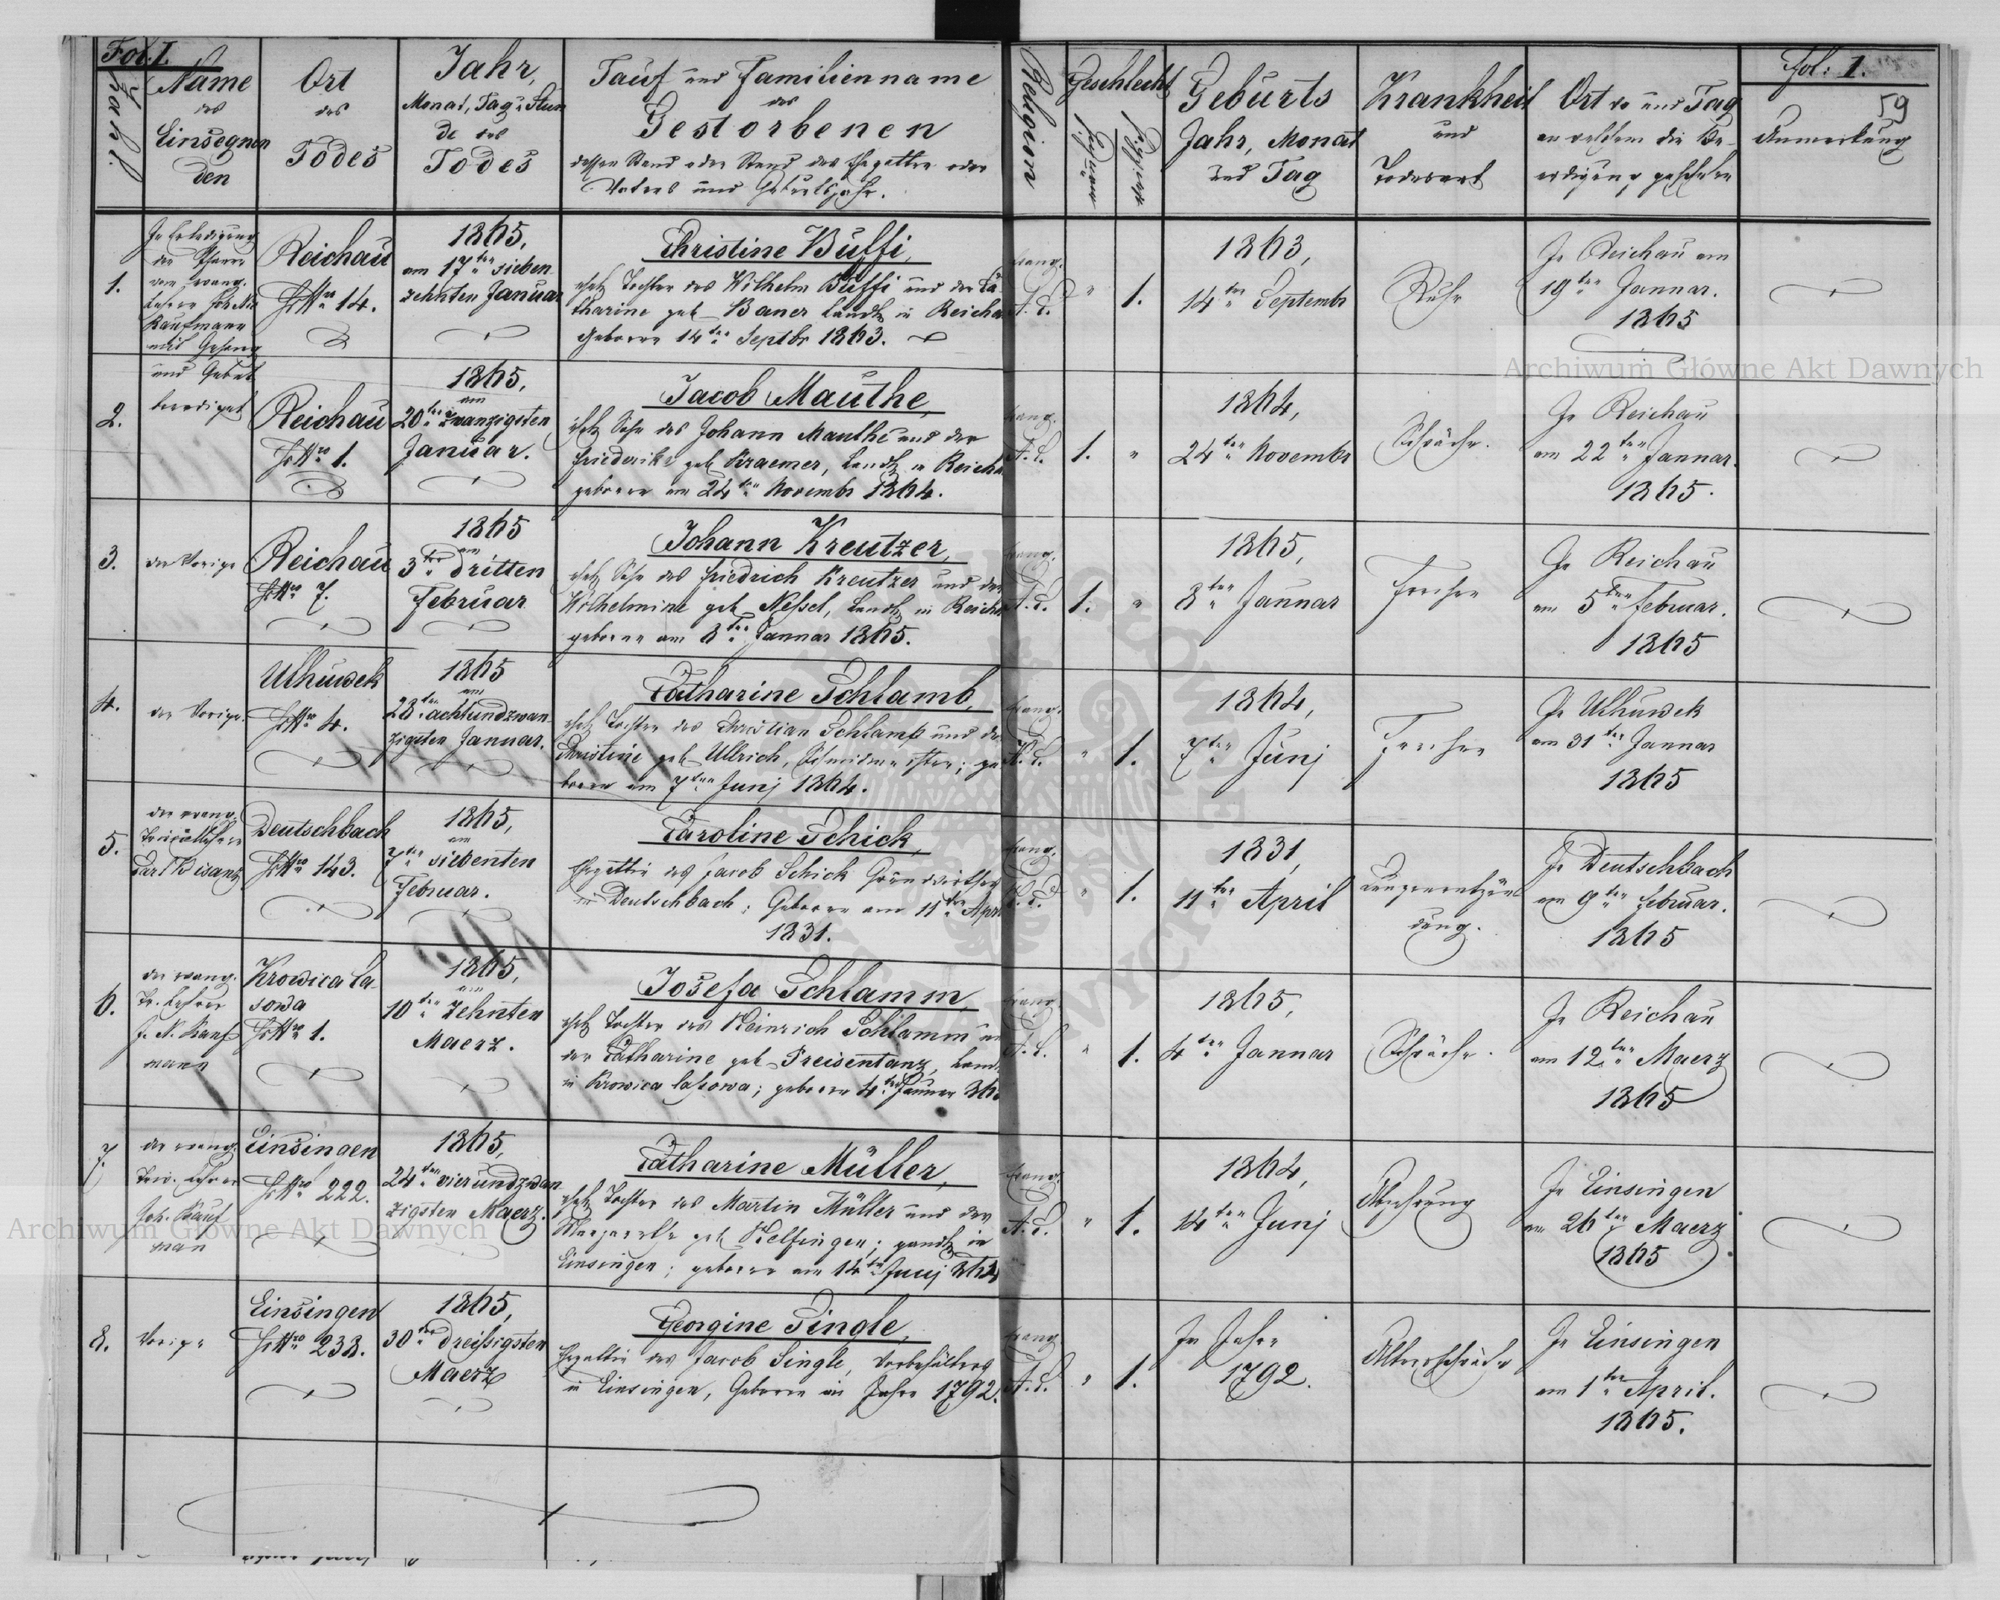 Fol. I.
Zahl.
Name
des
Einsegnen
den
Ort
des
Todes
Jahr,
Monat, Tag u Stun
de des
Todes
Tauf und Familienname
des
Gestorbenen
dessen Stand oder Stand des Ehegatten oder
Vaters und Geburtsjahr.
Religion
Geschlecht
Geburts
Jahr, Monat
und Tag
Krankheit
und
Todesart
Ort wo und Tag
an welchem die Be-
erdigung geschehen
Fol: 1.
59
Anmerkung
1.
In Erledigung
der Pfarre
vom evang.
Lehrer Joh. Nic
Kaufmann
mit Gesang
und Gebet
beerdiget
Reichau
HsNro 14.
1865,
am 17ten sieben
zehnten Januar
Christine Buffi,
ehel. Tochter des Wilhelm Buffi und der Ca
tharine geb Baner Landw in Reichau
Geboren 14ten Septbr 1863.
evang.
A. C.
" 1.
1863,
14ten Septembr
Ruhr
In Reichau am
19ten Januar.
1865
2.
Reichau
HsNro 1.
1865,
am
20ten zwanzigsten
Januar.
Jacob Mauthe,
ehel Sohn des Johann Mauthe und der
Friederike geb Kraemer, Landw in Reichau
geboren am 24ten Novembr 1864.
evang.
A. C.
1. "
1864,
24ten Novembr
Schwäche.
In Reichau
am 22ten Januar.
1865.
3.
der Vorige
Reichau
HsNro 7.
1865
am
3ten dritten
Februar
Johann Kreutzer,
ehel Sohn des Friedrich Kreutzer und der
Wilhelmine geb Nessel, Landw in Reichau
geboren am 8ten Januar 1865.
evang.
A. C.
1. "
1865,
8ten Januar
Freisen
In Reichau
am 5ten Februar.
1865
4.
der Vorige.
Ulhuwek
HsNro 4.
1865
am
28ten achtundzwan
zigsten Januar.
Catharine Schlamb,
ehel Tochter des Christian Schlamp und der
Christine geb Ullrich, Schmidmeister; ge
boren am 7ten Junj 1864.
evang.
A. C.
" 1.
1864,
7ten Junj
Freisen
In Ulhuwek
am 31ten Januar
1865
5.
der evang.
Privatlehrer
Carl Kisanz
Deutschbach
HsNro 143.
1865,
am
7ten siebenten
Februar.
Caroline Schick,
Ehegattin des Jacob Schick Grundwirthes
in Deutschbach; Geboren am 11ten April
1831.
evang.
A. C.
" 1.
1831,
11ten April
Lungenentzün
dung.
In Deutschbach
am 9ten Februar.
1865
6.
der evang.
Pr. Lehrer
J. N. Kauf
mann
Krowica la
sowa
HsNro 1.
1865,
am
10ten Zehnten
Maerz.
Josefa Schlamm,
ehel Tochter des Heinrich Schlamm u
der Catharine geb Preisentanz, Landw
in Krowica lasowa; geboren 4ten Januar 865
evang.
A. C.
" 1.
1865,
4ten Januar
Schwäche.
In Reichau
am 12ten Maerz
1865
7.
der evang.
Priv. Lehrer
Joh. Kauf
man
Einsingen
HsNro 222.
1865,
24ten vierundzwan
zigsten Maerz.
Catharine Müller,
ehel Tochter des Martin Müller und der
Margarethe geb Kelfingen; Landw in
Einsingen; geboren am 14ten Junj 864
evang.
A. C.
" 1.
1864,
14ten Junj
Abzehrung
In Einsingen
am 26ten Maerz
1865
8.
Vorige
Einsingen
HsNro 238.
1865,
30ten dreißigsten
Maerz
Georgine Single,
Ehegattin des Jacob Single, Vorbehälters
in Einsingen, Geboren im Jahre 1792.
evang.
A. C.
" 1.
Im Jahre
1792.
Altersschwäche
In Einsingen
am 1ten April.
1865.
Archiwum Główne Akt Dawnych
Archiwum Główne Akt Dawnych